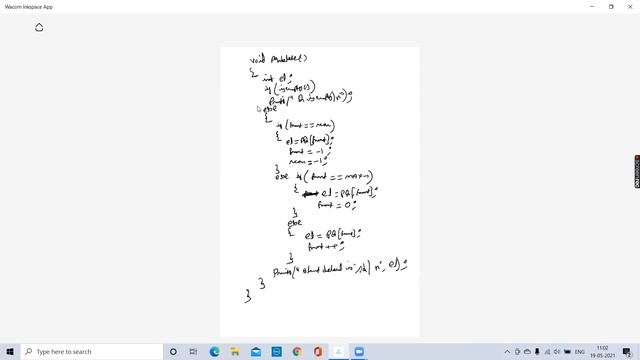 Wacom Inkspace App
void Pqdelete()
{
int el;
if (isempty())
printf(" Q is empty\n");
else
{
if (front == rear)
{
el = PQ[front];
front = -1;
rear = -1;
}
else if (front == MAX-1)
{
el = PQ[front];
front = 0;
}
else
{
el = PQ[front];
front++;
}
printf(" element deleted is %d\n", el);
}
}
Type here to search
11:02
19-05-2021